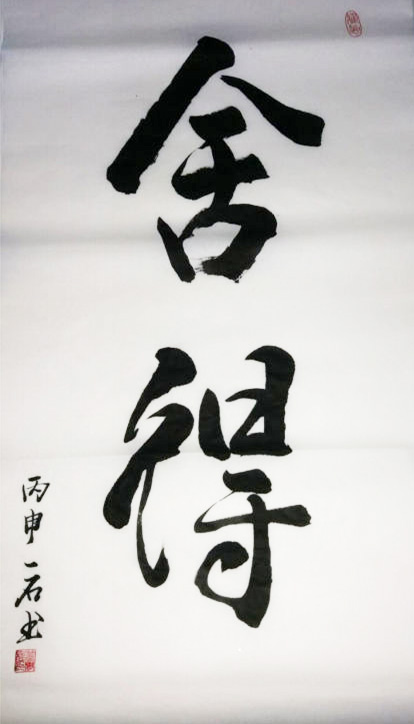 舍得
丙申一石书